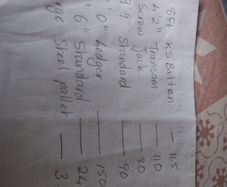 8ft KS Batten — 165
4'2" Transom — 110
Screw Jack — 80
9'9" Standard — 90
'0" Ledger — 150
'6" Standard — 24
Steel pallet — 3